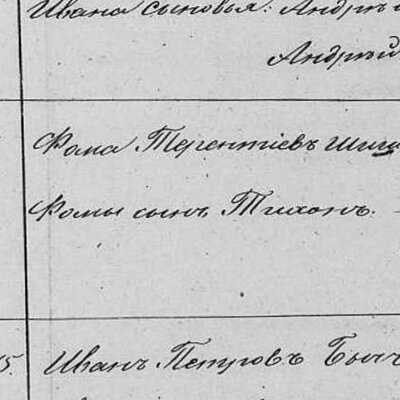 Ивана сыновья: Андрей
Андрей
Фома Терентіевъ Шиш
Фомы сынъ Тихонъ.
5. Иванъ Петровъ Быч